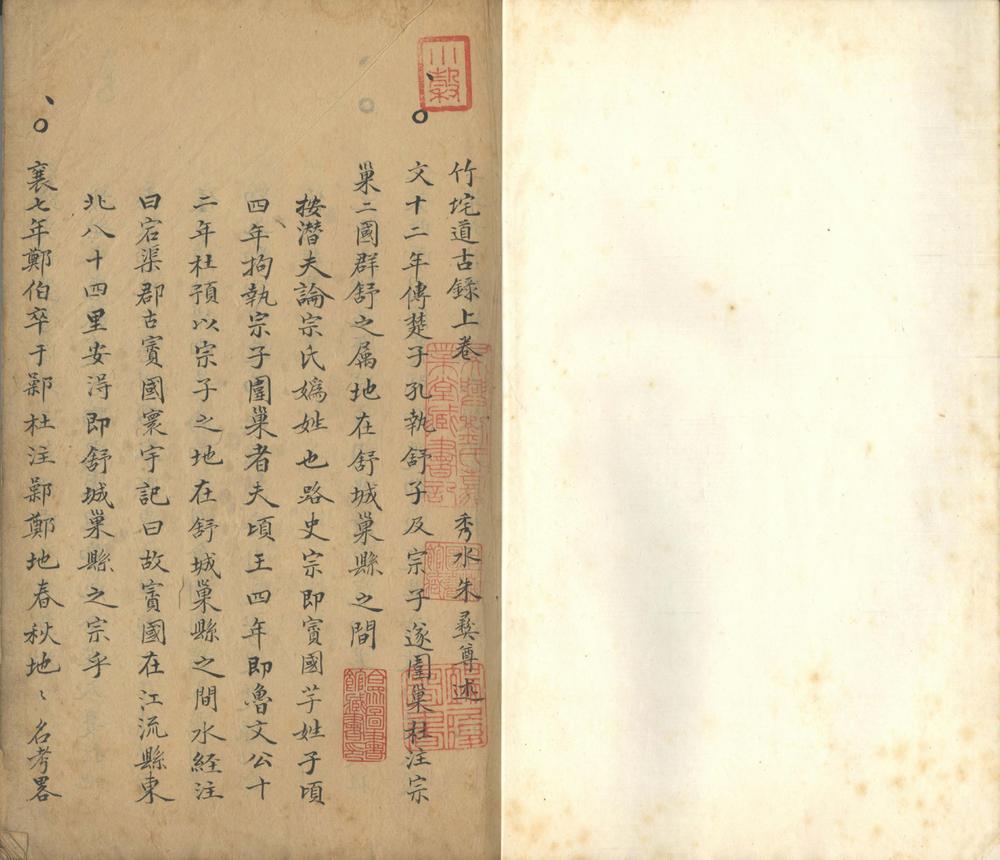 竹垞道古錄上卷 秀水朱彝尊述
文十二年傳楚子孔執舒子及宗子遂圍巢杜注宗
巢二國群舒之属地在舒城巢縣之間
按潛夫論宗氏嬀姓也路史宗即賨國芋姓子頃
四年拘執宗子圍巢者夫頃王四年即魯文公十
二年杜預以宗子之地在舒城巢縣之間水経注
曰宕渠郡古賨國寰宇記曰故賨國在江流縣東
北八十四里安淂即舒城巢縣之宗乎
襄七年鄭伯卒于鄵杜注鄵鄭地春秋地〻名考畧